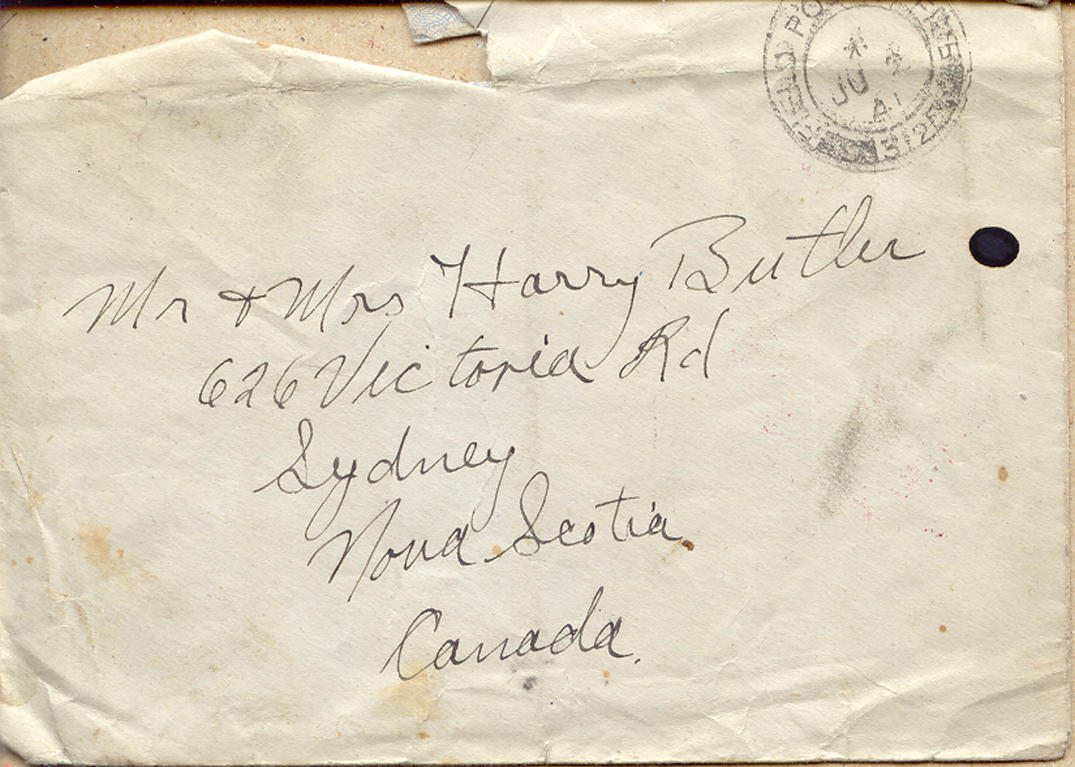 FIELD POST OFFICE
JU
41
312
Mr & Mrs Harry Butler
626 Victoria Rd
Sydney
Nova Scotia.
Canada.